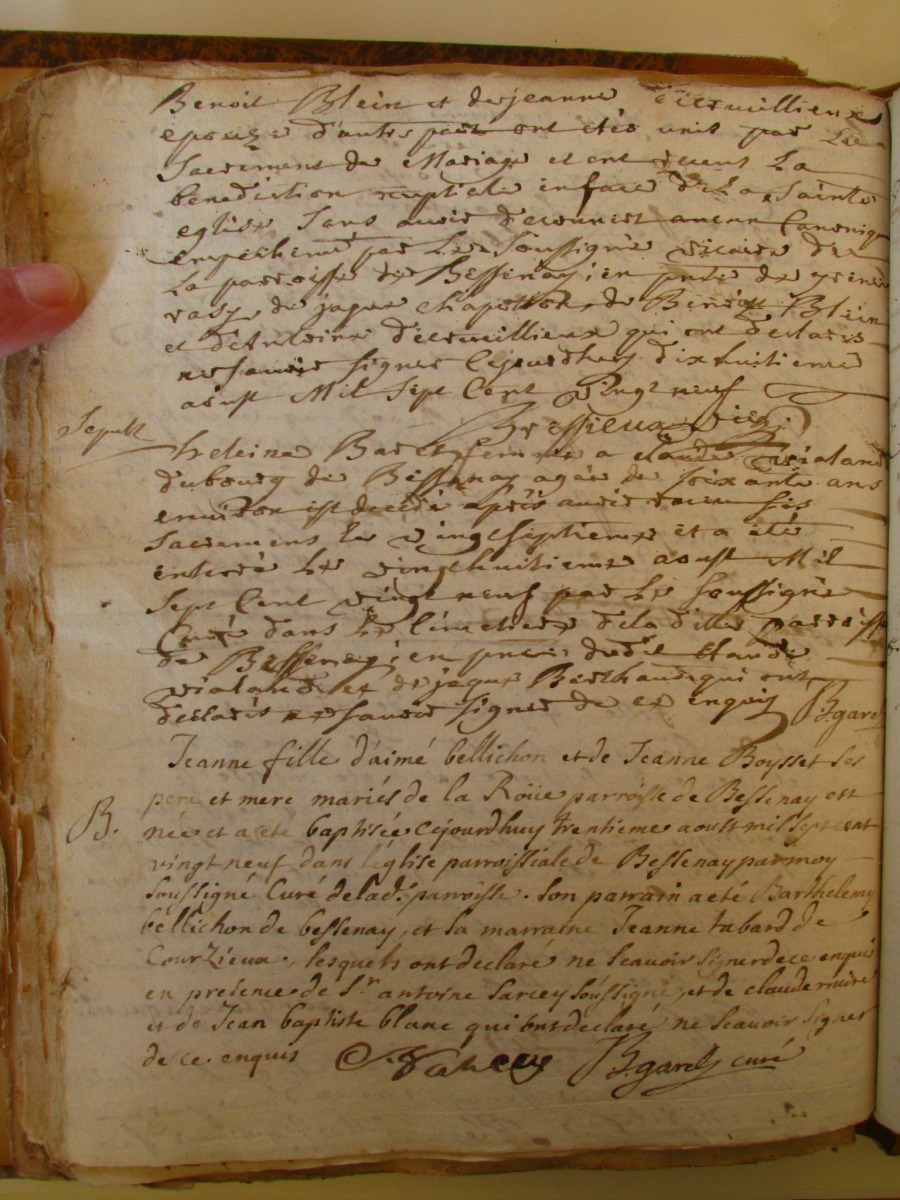 Benoit Blein et de jeanne decrouillieux
epouze d'autre part ont etés unit par Le
Sacrement de Mariage et ont receut La
benediction nuptiele en face de La Sainte
eglise Sans avoir decouvert aucun Canonique
empechemt par Le Soussigné vicaire de
La parroisse de Bessenay, en prnce de
de jaque chapottons de Benoit Blein
et d'Antoine decrouillieux qui ont declarés
ne sauoir signer Cejourdhuy dixhuitieme
aoust Mil Sept Cent Vingt neuf
Bressieux vic:
Sepult
heleine Baret femme a claude vialand
du bourg de Bessenay agée de soixante ans
environ est decedé après avoir receu ses
Sacremens le vingtseptieme et a été
enterré Le vingthuitieme aoust Mil
Sept Cent vingt neuf par Le Soussigné
Curé dans Le Cimetiere de la ditte parroisse
de Bessenay, en prnce dudit Claude
vialand et de jaque Berthaud qui ont
declarés ne sauoir signer de ce enquis B. garel
Jeanne fille d'aimé bellichon et de Jeanne Boysset ses
pere et mere mariés de la Roüe parroisse de Bessenay est
B. née et a eté baptisée cejourdhuy trentieme aoust mil sept cent
vingt neuf dans l'église parroissiale de Bessenay par moy
soussigné Curé de lad. parroisse. son parrain a eté Barthelemy
bellichon de bessenay, et sa marraine Jeanne tabard de
Courzieux, lesquels ont declaré ne Scauoir signer de ce enquis
en presence de Sr antoine Sarcey Soussigné, et de claude riviere
et de Jean baptiste blanc qui ont declaré ne Scauoir Signer
de ce enquis Sarcey B. garel curé